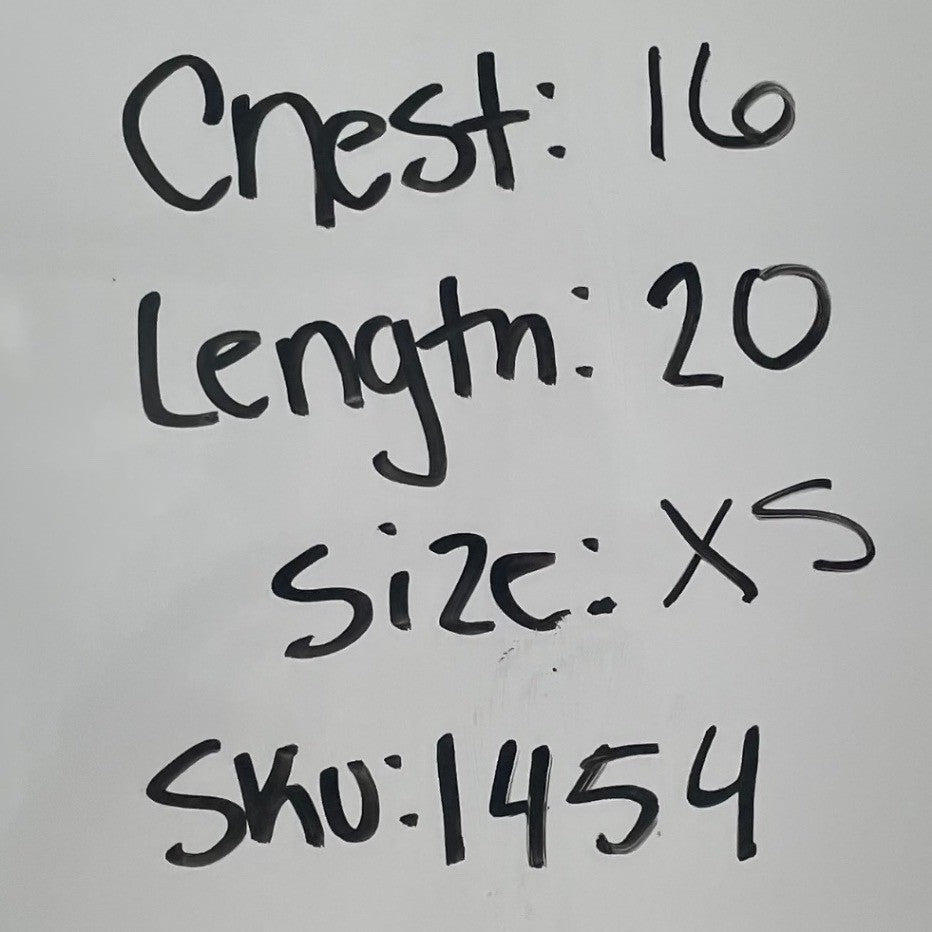 Chest: 16
Length: 20
Size: XS
SKU: 1454